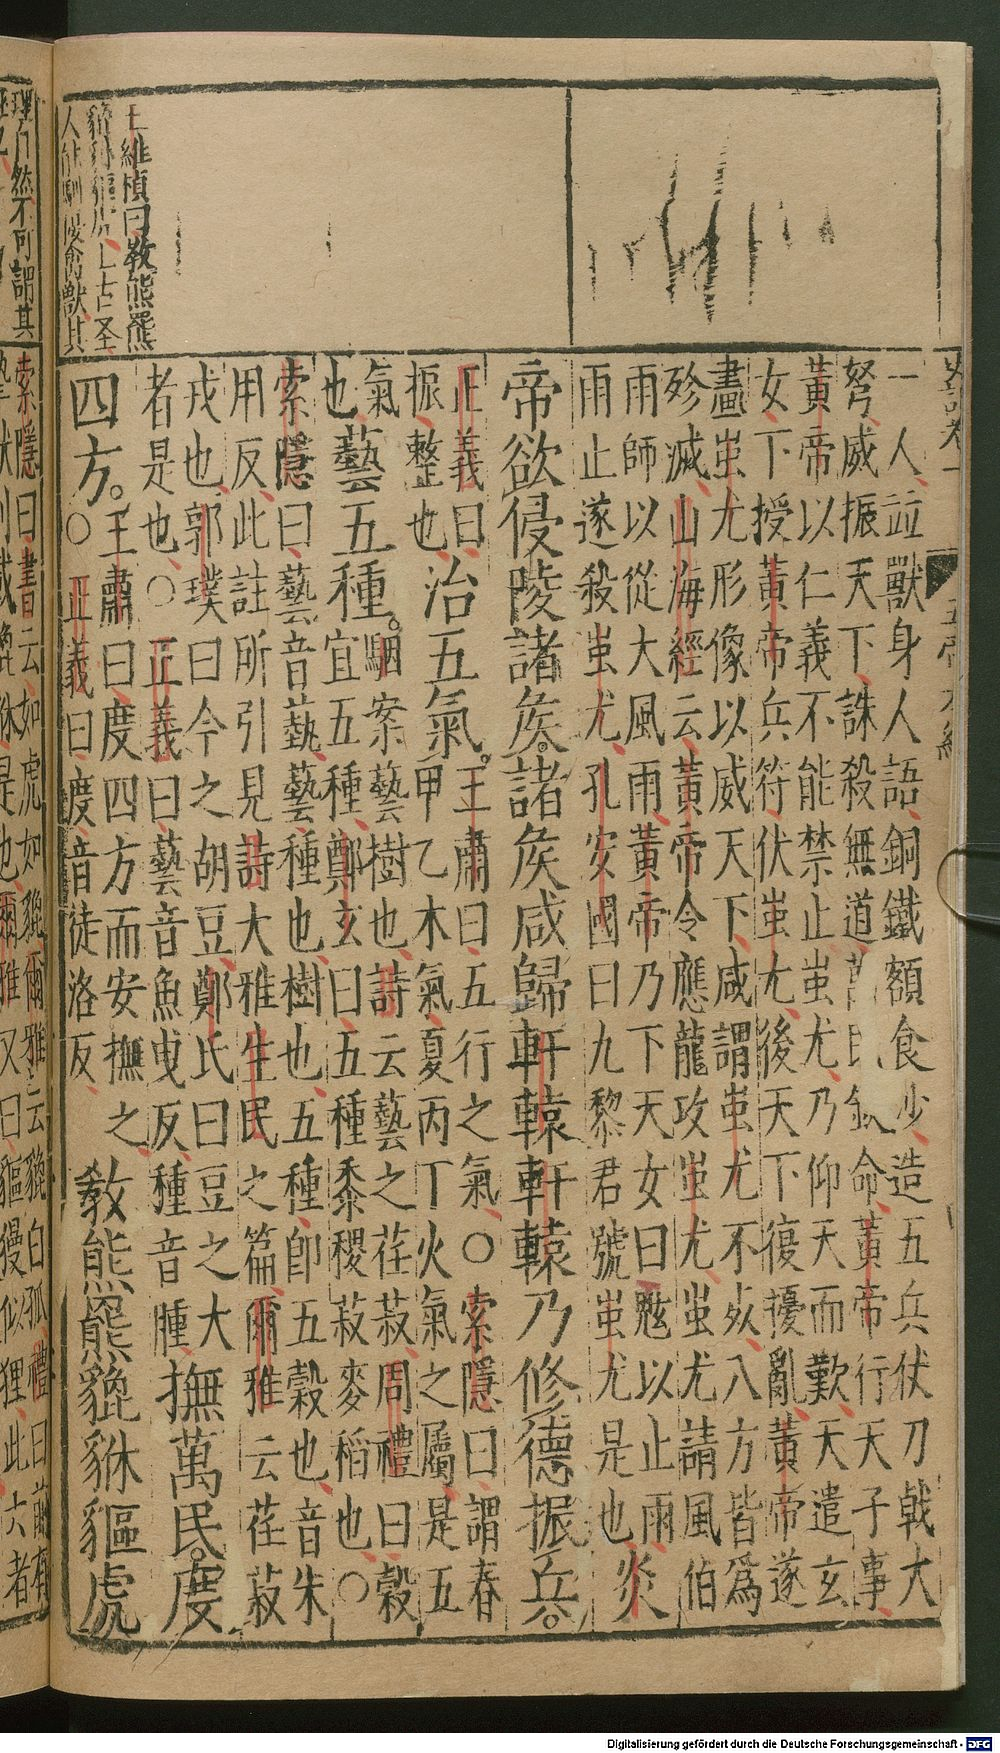 史記卷一
五帝本紀
王維楨曰教熊羆
人能馴擾禽獸其
一人竝獸身人語銅鐵額食沙造五兵伏刀戟大
弩威振天下誅殺無道萬民欽命黃帝行天子事
黃帝以仁義不能禁止蚩尤乃仰天而歎天遣玄
女下授黃帝兵符伏蚩尤後天下復擾亂黃帝遂
畫蚩尤形像以威天下咸謂蚩尤不死八方皆爲
殄滅山海經云黃帝令應龍攻蚩尤蚩尤請風伯
雨師以從大風雨黃帝乃下天女曰魃以止雨
雨止遂殺蚩尤孔安國曰九黎君號蚩尤是也 炎
帝欲侵陵諸矦。諸矦咸歸軒轅軒轅乃修德振兵。
正義曰振整也 治五氣。王肅曰五行之氣○索隱曰謂春
甲乙木氣夏丙丁火氣之屬是五
氣也 藝五種。駰案藝樹也詩云藝之荏菽周禮曰穀
宜五種鄭玄曰五種黍稷菽麥稻也○
索隱曰藝音蓺藝種也樹也五種卽五穀也音朱
用反此註所引見詩大雅生民之篇爾雅云荏菽
戎也郭璞曰今之胡豆鄭氏曰豆之大
者是也○正義曰藝音魚曳反種音腫 撫萬民。度
四方。王肅曰度四方而安撫之
○正義曰度音徒洛反 教熊羆貔貅貙虎
索隱曰書云如虎如貔爾雅云貔白狐禮曰前有
摯獸則載貔貅是也爾雅又曰貙獌似貍此六者
理門然不可謂其
Digitalisierung gefördert durch die Deutsche Forschungsgemeinschaft - DFG